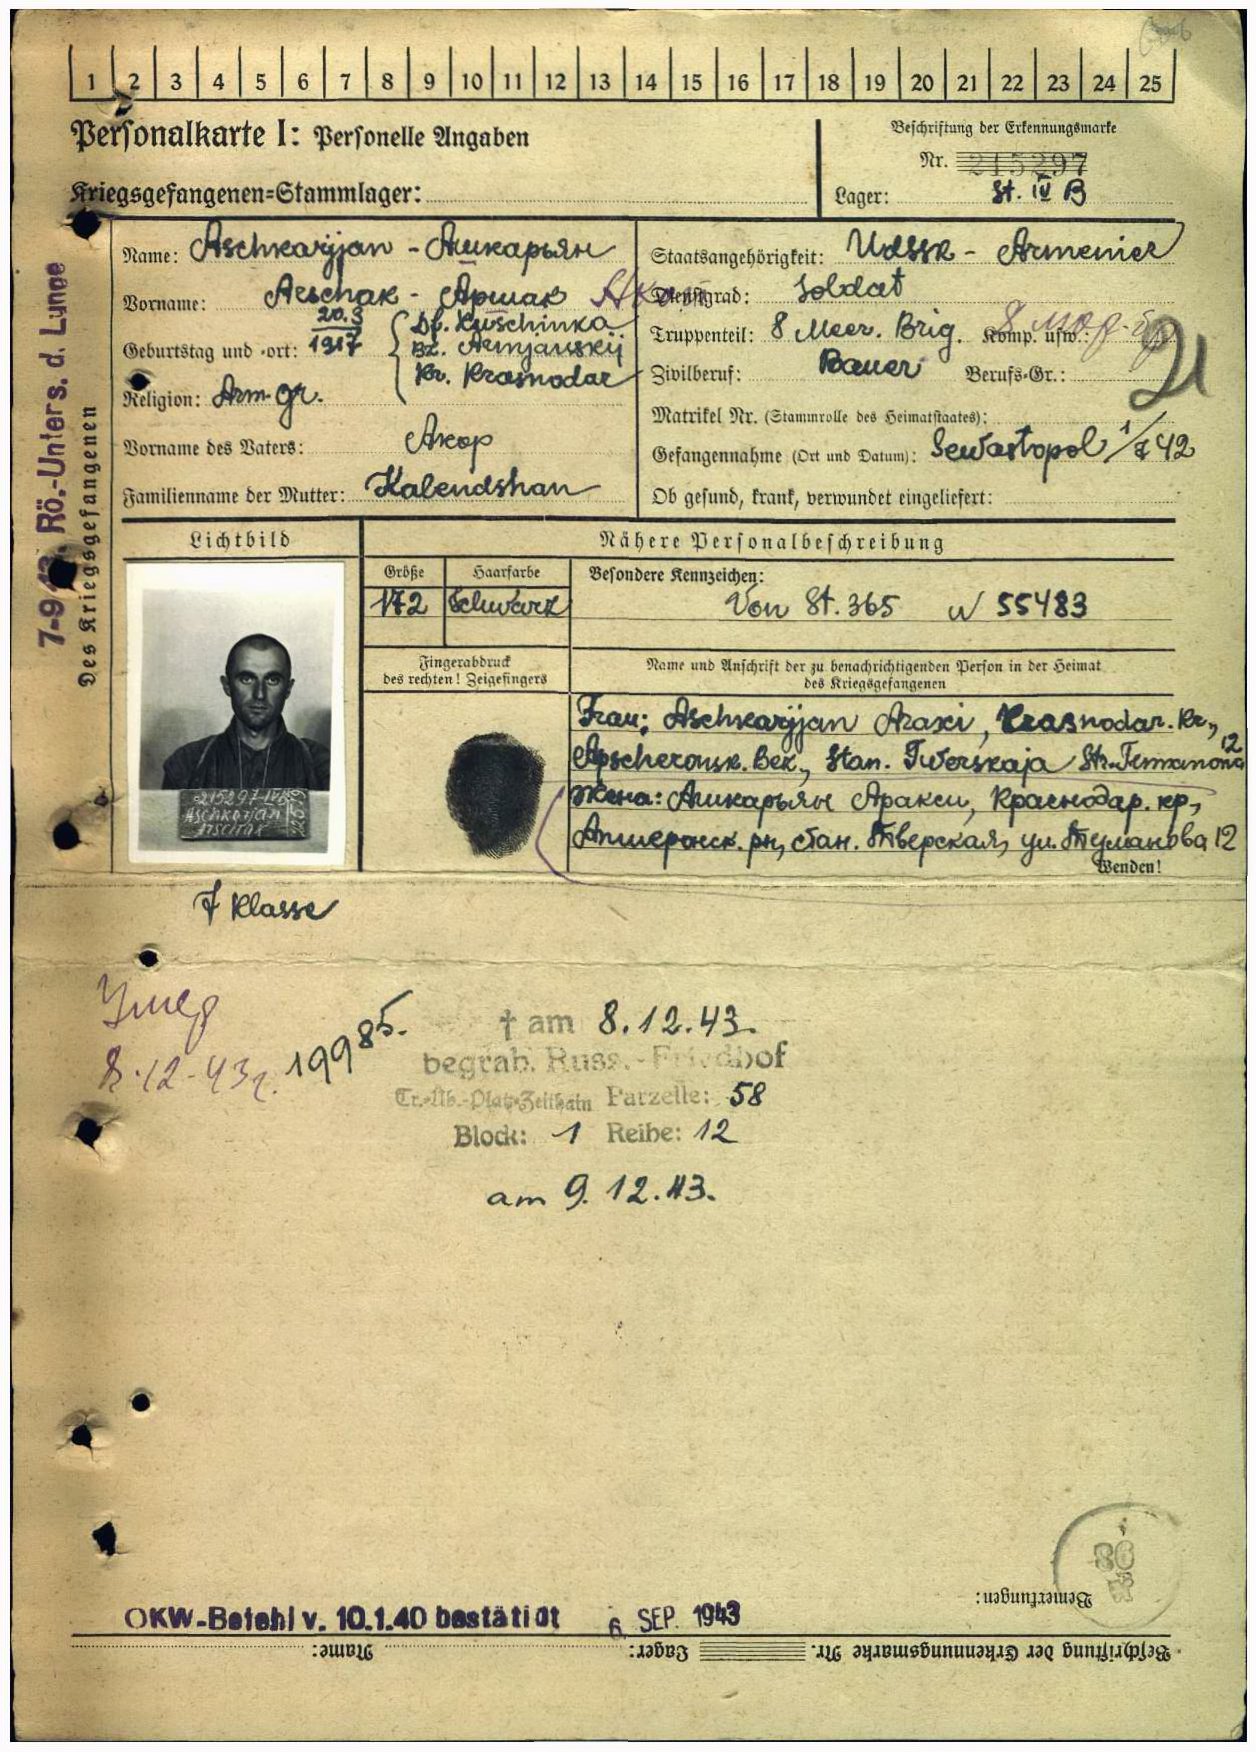 1 2 3 4 5 6 7 8 9 10 11 12 13 14 15 16 17 18 19 20 21 22 23 24 25
Personalkarte I: Personelle Angaben
Kriegsgefangenen-Stammlager:
Beschriftung der Erkennungsmarke
Nr. 215297
Lager: St. IV B
Name: Aschkarjjan - Ашкарьян
Vorname: Arschak - Аршак
Geburtstag und -ort: 20.3 1917
Df. Kuschinka
Bz. Armjanskij
Kr. Krasnodar
Religion: Arm. gr.
Vorname des Vaters: Акор
Familienname der Mutter: Kalendshan
Staatsangehörigkeit: UdSSR - Armenier
Dienstgrad: Soldat
Truppenteil: 8 Meer. Brig. Komp. usw.: 8 мор.
Zivilberuf: Bauer Berufs-Gr.:
21
Matrikel Nr. (Stammrolle des Heimatstaates):
Gefangennahme (Ort und Datum): Sewastopol 1/7 42
Ob gesund, krank, verwundet eingeliefert:
7-9 43 Rö.-Unters. d. Lunge
Des Kriegsgefangenen
Lichtbild
Nähere Personalbeschreibung
Größe Haarfarbe Besondere Kennzeichen:
172 Schwarz Von St. 365 N 55483
Fingerabdruck
des rechten! Zeigefingers
Name und Anschrift der zu benachrichtigenden Person in der Heimat
des Kriegsgefangenen
Frau: Aschkarjjan Araxi, Krasnodar. Kr.,
Apscheronsk. Bez., Stan. Twerskaja Str. Temanowa 12
Жена: Ашкарьян Аракси, Краснодар. кр.,
Апшеронск. рн, стан. Тверская, ул. Туманова 12
Wenden!
215297 IVB
ASCHKARJAN
ARSCHAK
7 Klasse
Умер
8.12-43г.
19985.
† am 8.12.43.
begrab. Russ.-Friedhof
Tr.-Üb.-Platz-Zeithain Parzelle: 58
Block: 1 Reihe: 12
am 9.12.43.
86
Bemerkungen:
OKW-Befehl v. 10.1.40 bestätigt 6. SEP. 1943
Beschriftung der Erkennungsmarke Nr. Lager: Name: